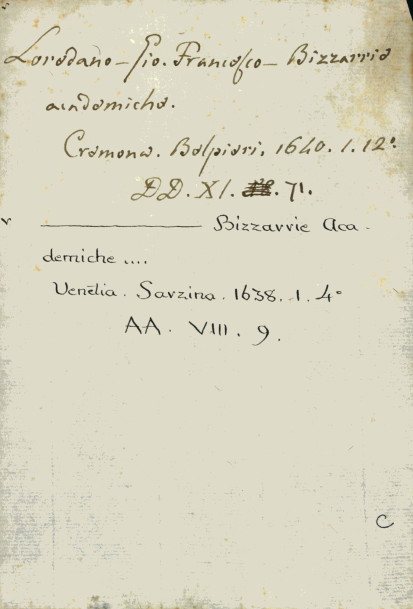 Loredano - Gio. Francesco - Bizzarrie
academiche.
Cremona. Belpieri. 1640. 1. 12°.
DD. XI. 71.
v ———— Bizzarrie Aca-
demiche ....
Venetia. Sarzina. 1638. 1. 4°
AA. VIII. 9.
C